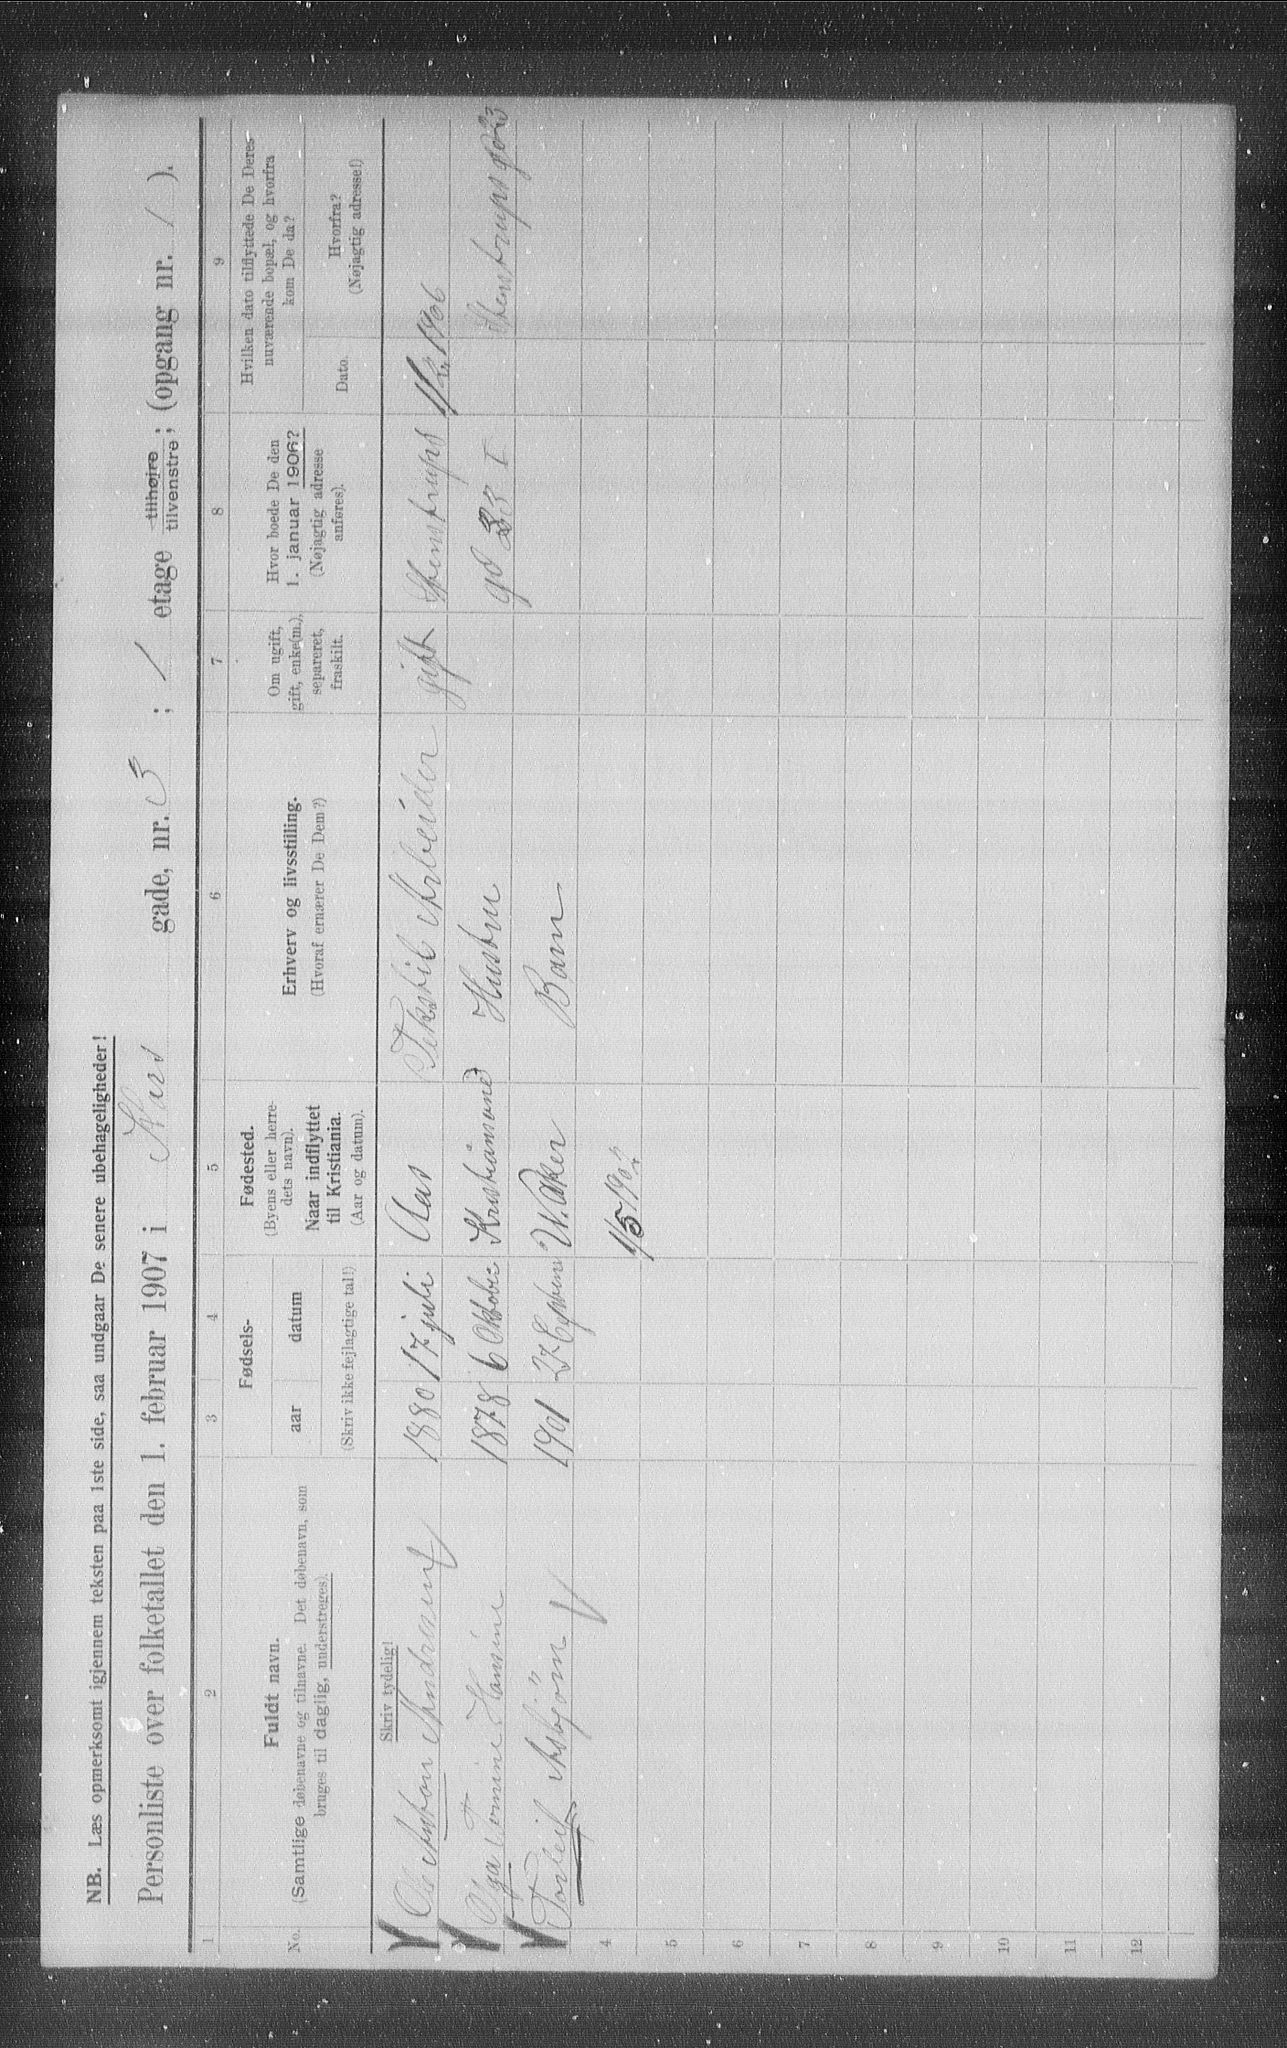 NB. Læs opmerksomt igjennem teksten paa 1ste side, saa undgaar De senere ubehageligheder!
Personliste over folketallet den 1. februar 1907 i gade, nr. 3 ; 1 etage tilhøire tilvenstre; (opgang nr. 1 ).
1 2 3 4 5 6 7 8 9
No.
Fuldt navn.
(Samtlige døbenavne og tilnavne. Det døbenavn, som
bruges til daglig, understreges).
Fødsels-
aar datum
(Skriv ikke fejlagtige tal!)
Fødested.
(Byens eller herre-
dets navn).
Naar indflyttet
til Kristiania.
(Aar og datum).
Erhverv og livsstilling.
(Hvoraf ernærer De Dem?)
Om ugift,
gift, enke(m.),
separeret,
fraskilt.
Hvor boede De den
1. januar 1906?
(Nøjagtig adresse
anføres).
Hvilken dato tilflyttede De Deres
nuværende bopæl, og hvorfra
kom De da?
Dato.
Hvorfra?
(Nøjagtig adresse!)
Skriv tydelig!
Ole Anton 1880 17 juli Aas Tekstil Arbeider gift Stenstrups
Olga Tomine Hansine 1878 6 Oktober Kristiansand Hustru gd 33 I Stenstrups gd 23
Torleif Asbjørn 1901 27 V. Aker Barn
4
5
6
7
8
9
10
11
12